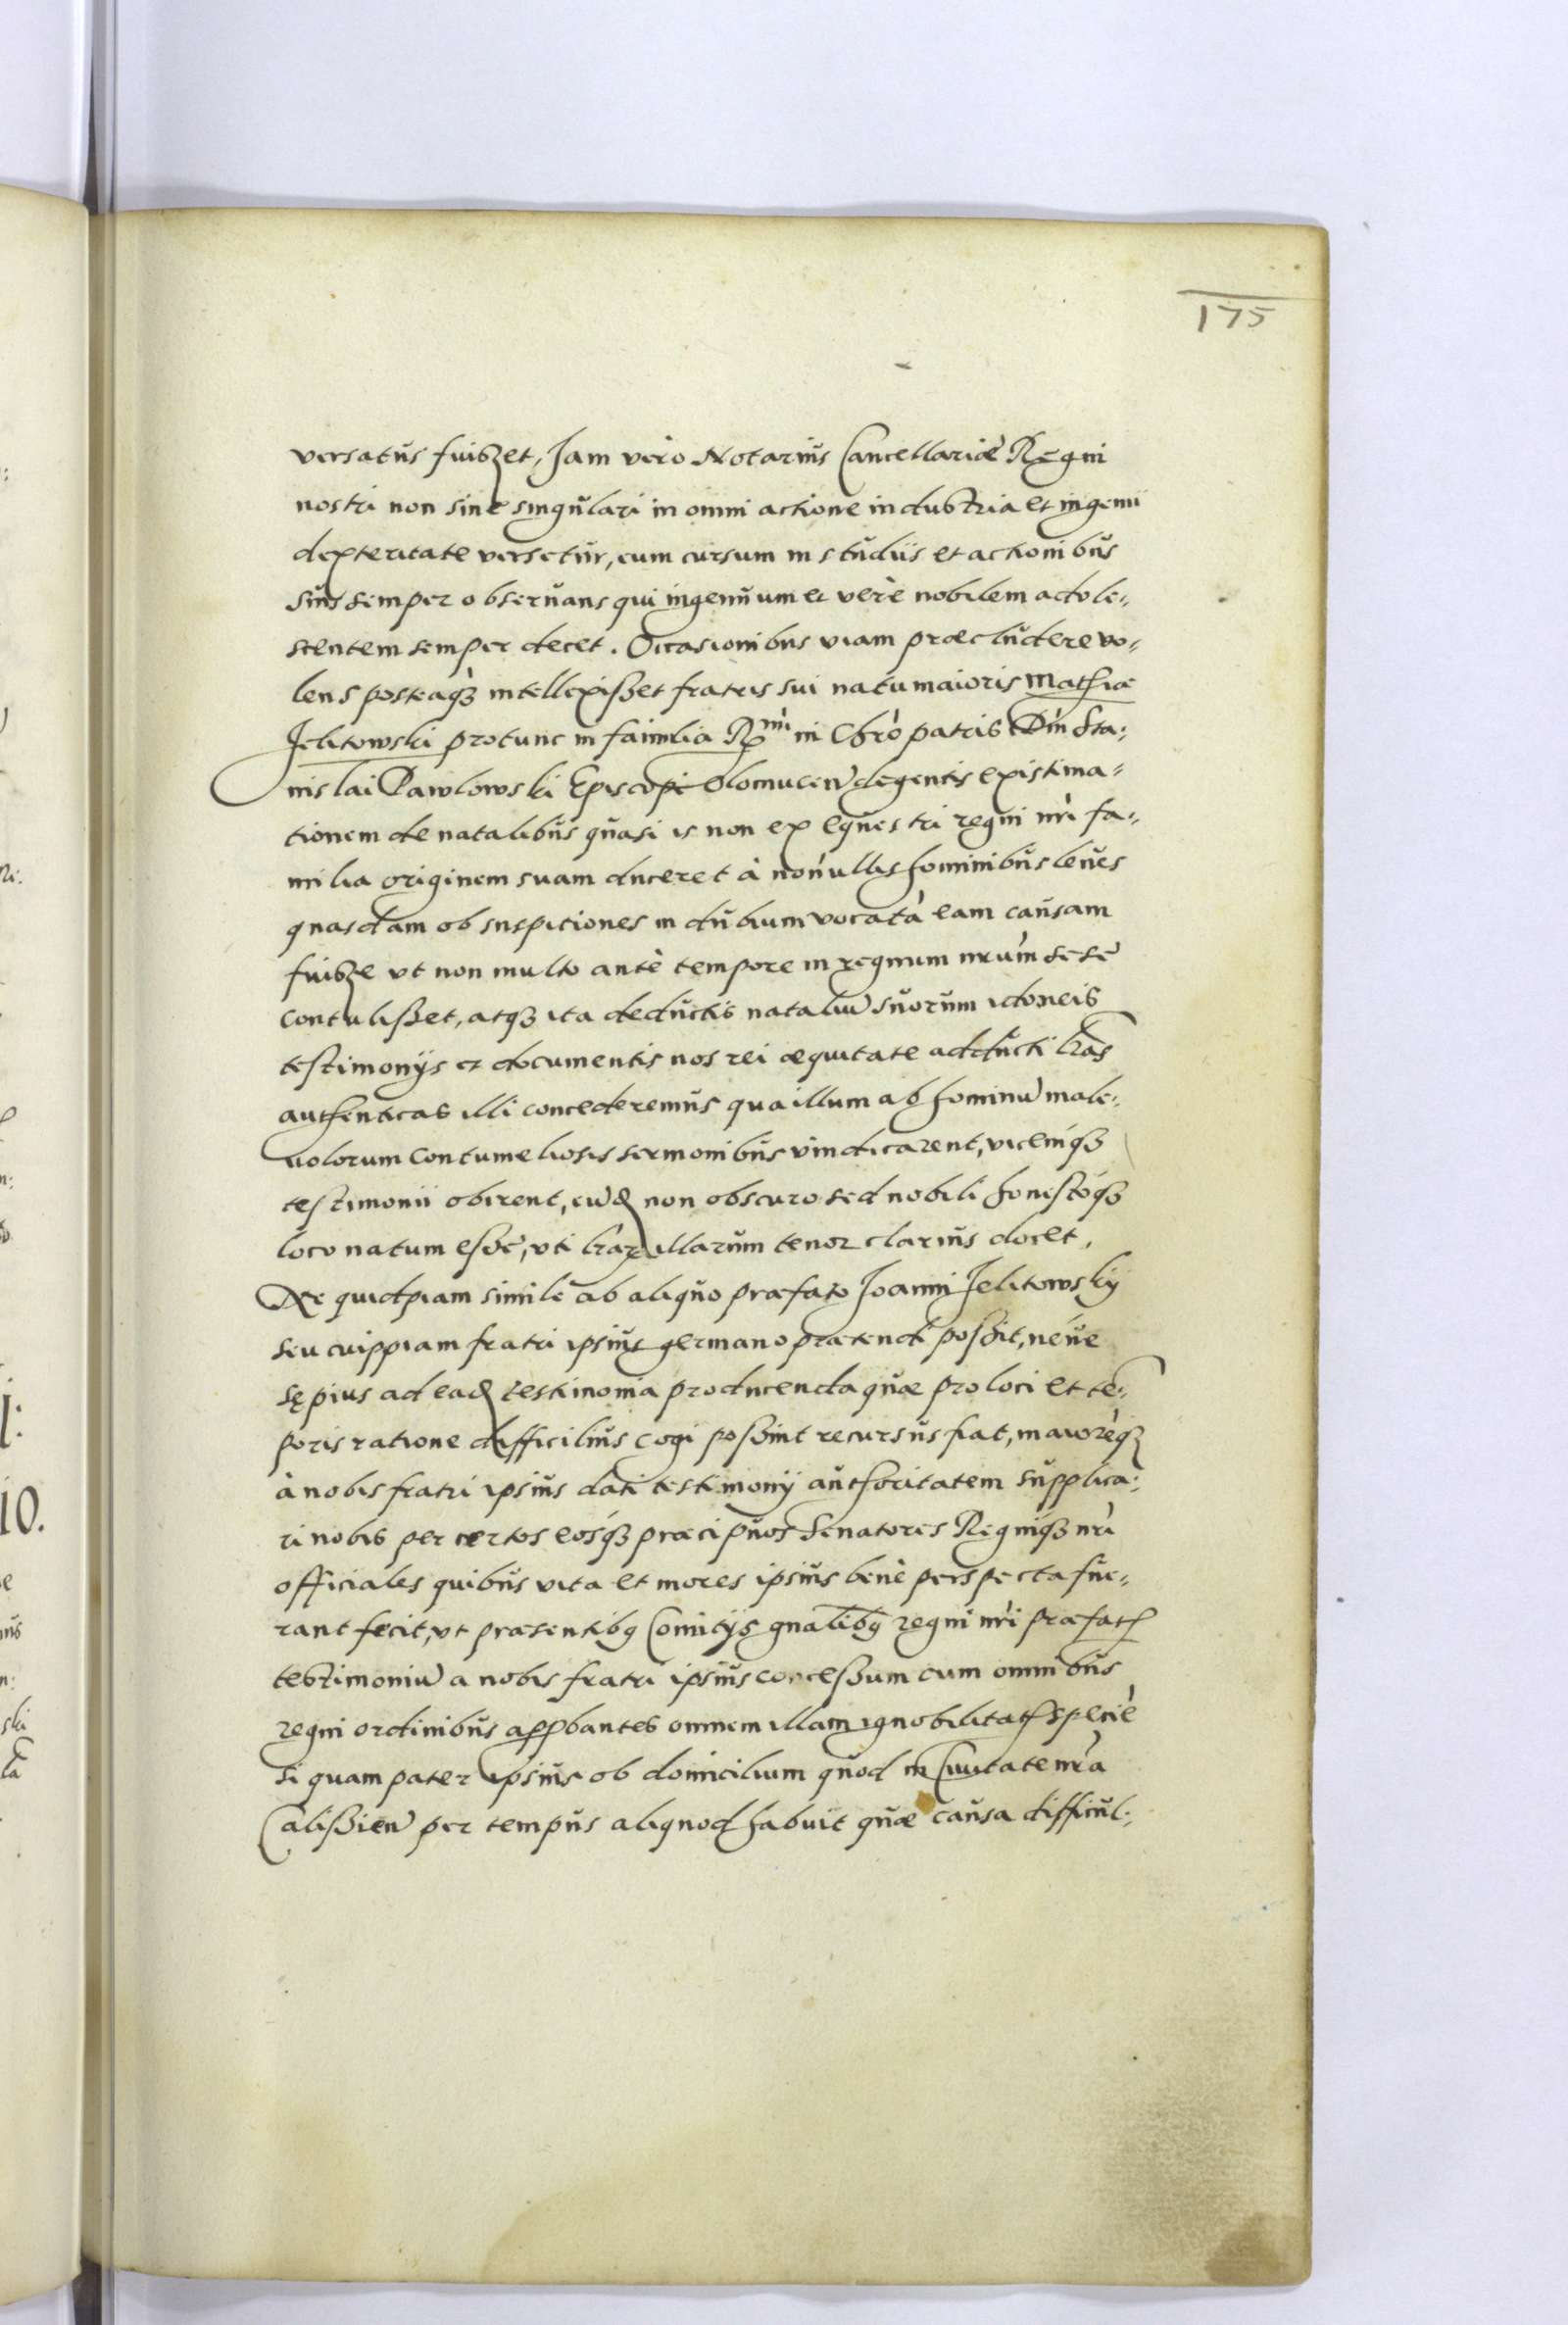 175
versatus fuisset, Jam vero Notarius Cancellariæ Regni
nostri non sine singulari in omni actione industria et ingenii
dexteritate versetur, eum cursum in studiis et actionibus
suis semper obseruans qui ingenuum et verè nobilem adole-
scentem semper decet. Occasionibus viam præcludere vo-
lens posteaq3 intellexisset fratris sui natu maioris Mathiæ
Jelitowski protunc in familia R^mi in Chrō patris Dnī Sta-
nislai Pawlowski Episcopi Olomucen̄ degentis existima-
tionem de natalibus quasi is non ex equestri regni nrī fa-
milia originem suam duceret à nonnullis hominibus leues
quasdam ob suspitiones in dubium vocatā eam causam
fuisse vt non multo antè tempore in regnum nrūm sese
contulisset, atq3 ita deductis nataliū suorum idoneis
testimonijs et documentis nos rei æquitate adducti lrās
authenticas illi concederemus qua illum ab hominū male-
uolorum contumeliosis sermonibus vindicarent, vicemq3
testimonii obirent, eūd non obscuro sed nobili honestoq3
loco natum esse, vti lrār illarum tenor clarius docet.
Ne quidpiam simile ab aliquo præfato Joanni Jelitowskij
seu cuippiam fratri ipsius germano prætendi possit, néue
sępius ad ead testimonia producenda quæ pro loci et tē-
poris ratione difficilius cogi possint recursus fiat, maiorèq3
à nobis fratri ipsius dati testimonij authoritatem supplica-
ri nobis per certos eosq3 præcipuos Senatores Regniq3 nrī
officiales quibus vita et mores ipsius benè perspecta fue-
rant fecit, vt præsentibq Comitijs gnalibq regni nrī præfat
testimoniū a nobis fratri ipsius concessum cum omnibus
regni ordinibus appbantes omnem illam ignobilitat speciē
si quam pater ipsius ob domicilium quod in Ciuitate nrā
Calissien̄ per tempus aliquod habuit quæ causa difficul-